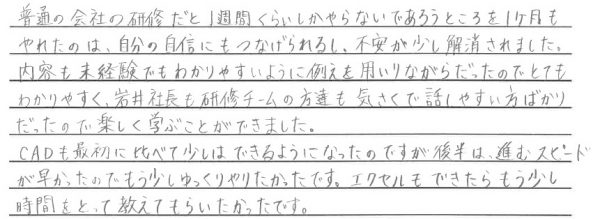 普通の会社の研修だと1週間くらいしかやらないであろうところを1ヶ月も
やれたのは、自分の自信にもつなげられるし、不安が少し解消されました。
内容も未経験でもわかりやすいように例えを用いりながらだったのでとても
わかりやすく、岩井社長も研修チームの方達も気さくで話しやすい方ばかり
だったので楽しく学ぶことができました。
CADも最初に比べて少しはできるようになったのですが後半は、進むスピード
が早かったのでもう少しゆっくりやりたかったです。エクセルもできたらもう少し
時間をとって教えてもらいたかったです。